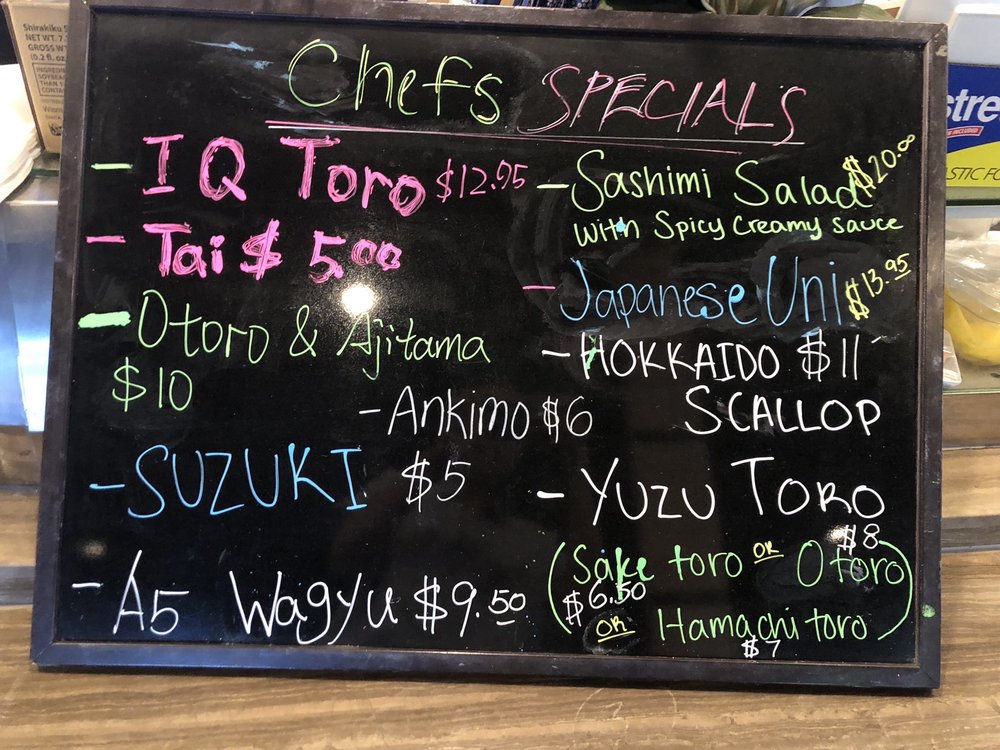 Shirakiku
NET WT. 7.
GROSS WT
(0.2 fl. oz
Chefs SPECIALS
- IQ Toro $12.95
- Tai $ 5.00
- Otoro & Ajitama
$10
- Ankimo $6
- SUZUKI $5
- A5 Wagyu $9.50
- Sashimi Salad $20.00
With Spicy Creamy sauce
- Japanese Uni $13.95
- HOKKAIDO $11
SCALLOP
- YUZU TORO
(Sake toro OR Otoro $8
$6.50 OR Hamachi toro)
$7
stre
INCLUDED
STIC FO